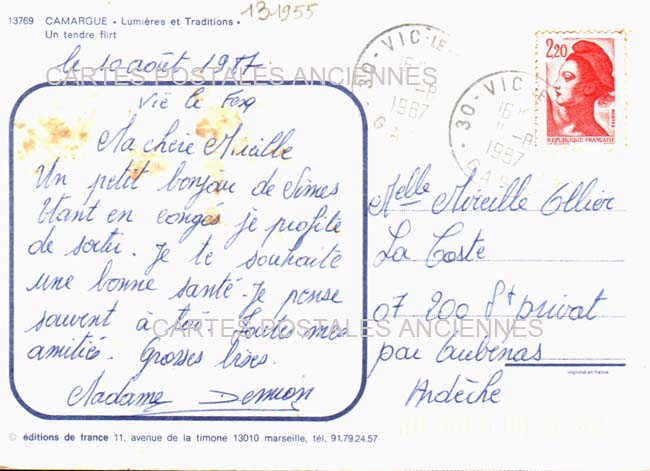 131955
13769 CAMARGUE • Lumières et Traditions •
Un tendre flirt
le 10 août 1987
Vic le Fesq
Ma chère Mireille
Un petit bonjour de Nîmes
Etant en congés je profite
de sortir. Je te souhaite
une bonne santé. Je pense
souvent à toi. Toutes mes
amitiés. Grosses bises.
Madame
30 - VIC-LE
1987
GA
30 - VIC
16 H
1987
GA
2,20
POSTES
REPUBLIQUE FRANÇAISE
Melle Mireille Ollier
La Coste
07 200 St privat
par Aubenas
Ardèche
imprimé en france
© éditions de france 11, avenue de la timone 13010 marseille, tél. 91.79.24.57
CARTES POSTALES ANCIENNES
CARTES POSTALES ANCIENNES